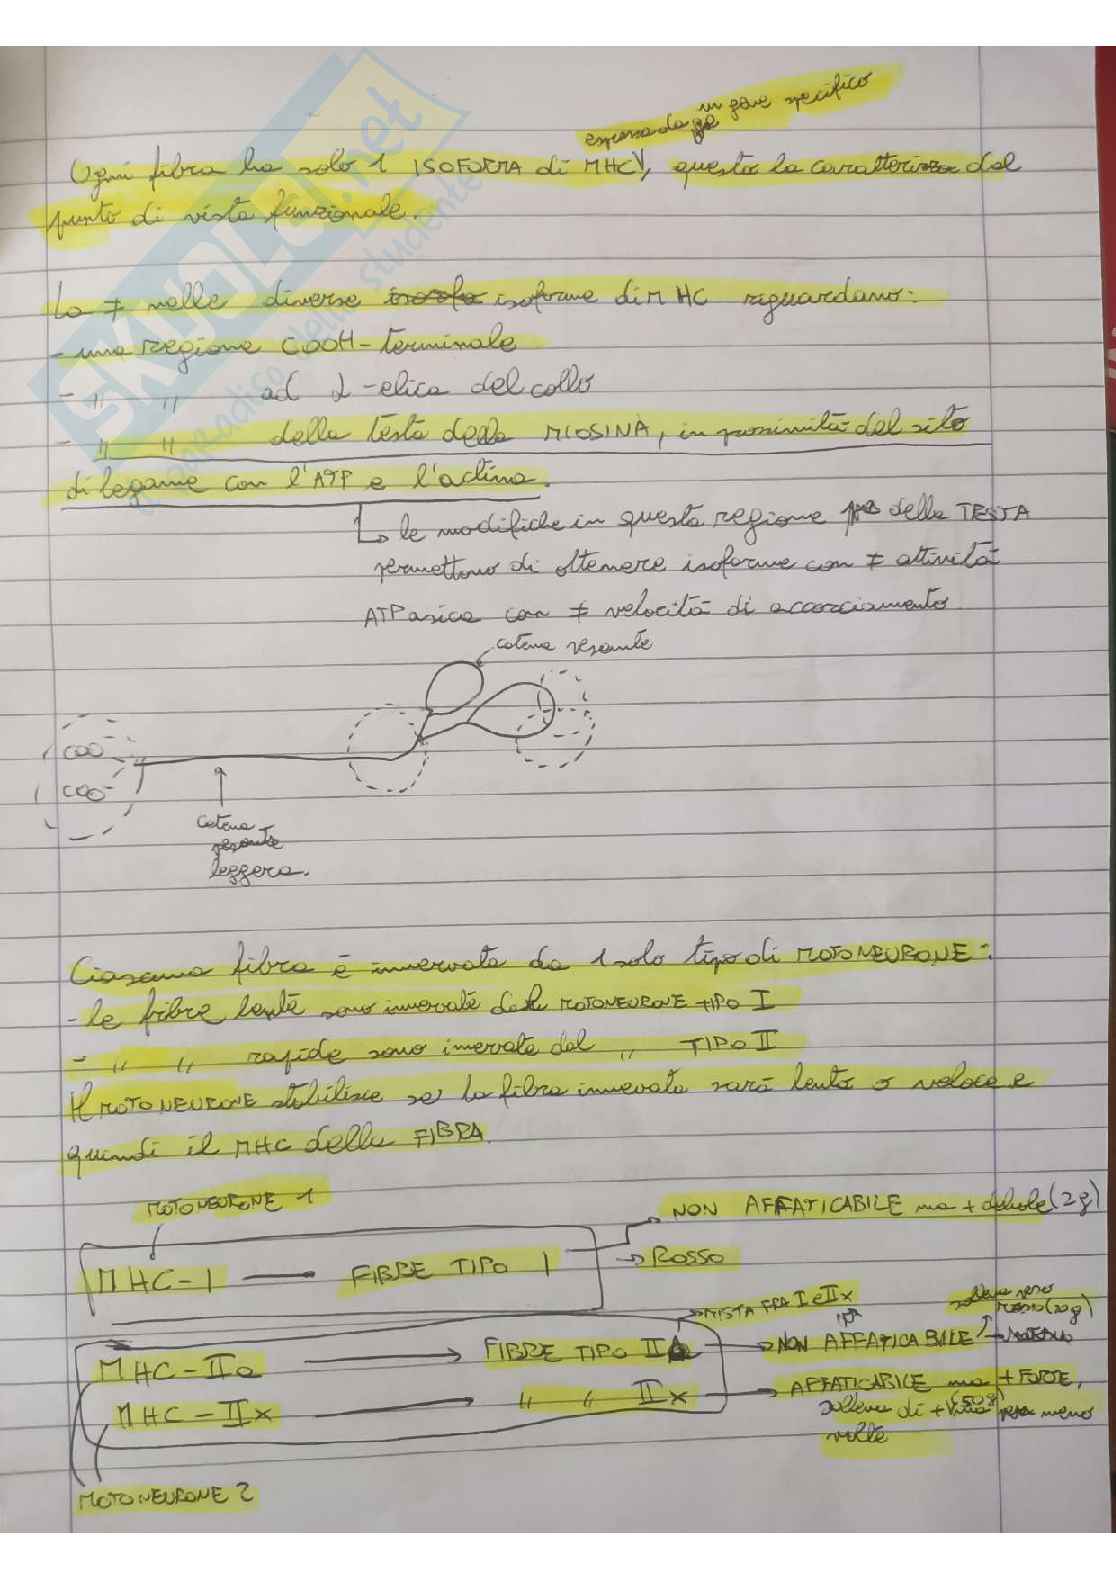 espressa da in gene specifico
Ogni fibra ha solo 1 ISOFORMA di MHC, questo la caratterizza dal
punto di vista funzionale.
Le ≠ nelle diverse isoforme di MHC riguardano:
- una regione COOH-terminale
- " " ad α-elica del collo
- " " della testa della MIOSINA, in prossimità del sito
di legame con l'ATP e l'actina.
↳ le modifiche in questa regione della TESTA
permettono di ottenere isoforme con ≠ attività
ATPasica con ≠ velocità di accorciamento
catena pesante
COO-
COO-
catena
pesante
leggera.
Ciascuna fibra è innervata da 1 solo tipo di MOTONEURONE:
- le fibre lente sono innervate dal MOTONEURONE TIPO I
- " " rapide sono innervate dal " TIPO II
Il MOTONEURONE stabilisce se la fibra innervata sarà lenta o veloce e
quindi il MHC della FIBRA.
MOTONEURONE 1
→ NON AFFATICABILE ma + debole (2g)
MHC-1 → FIBRE TIPO 1
→ ROSSO
→ MISTA FRA I e IIx
peso
(20g)
MHC-IIa → FIBRE TIPO IIA → NON AFFATICABILE →
MHC-IIx → " " IIx → AFFATICABILE ma + FORTE,
solleva di + (50g) meno
volte
MOTONEURONE 2
SKUOLA.net
il paradiso dello studente